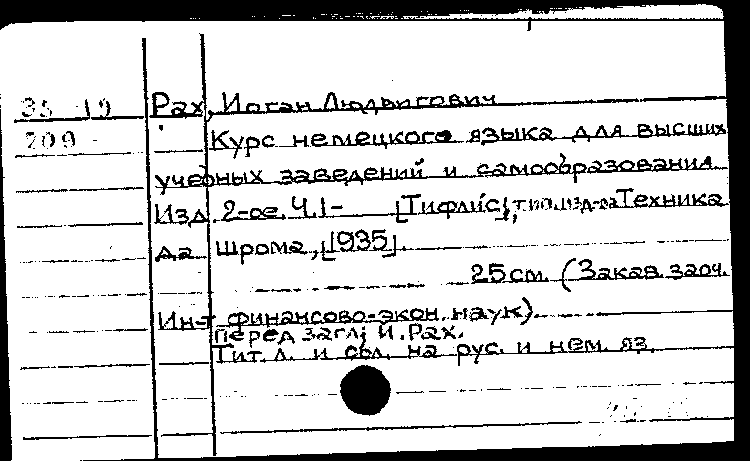 35 19 Рах, Иоган Людвигович
209 Курс немецкого языка для высших
учебных заведений и самообразования.
Изд. 2-ое. Ч.1- [Тифлис], тип. изд-ва Техника
да Шрома, [1935].
25 см. (Закав. заоч.
Ин-т финансово-экон. наук).
Перед загл; И. Рах.
Тит. л. и обл. на рус. и нем. яз.